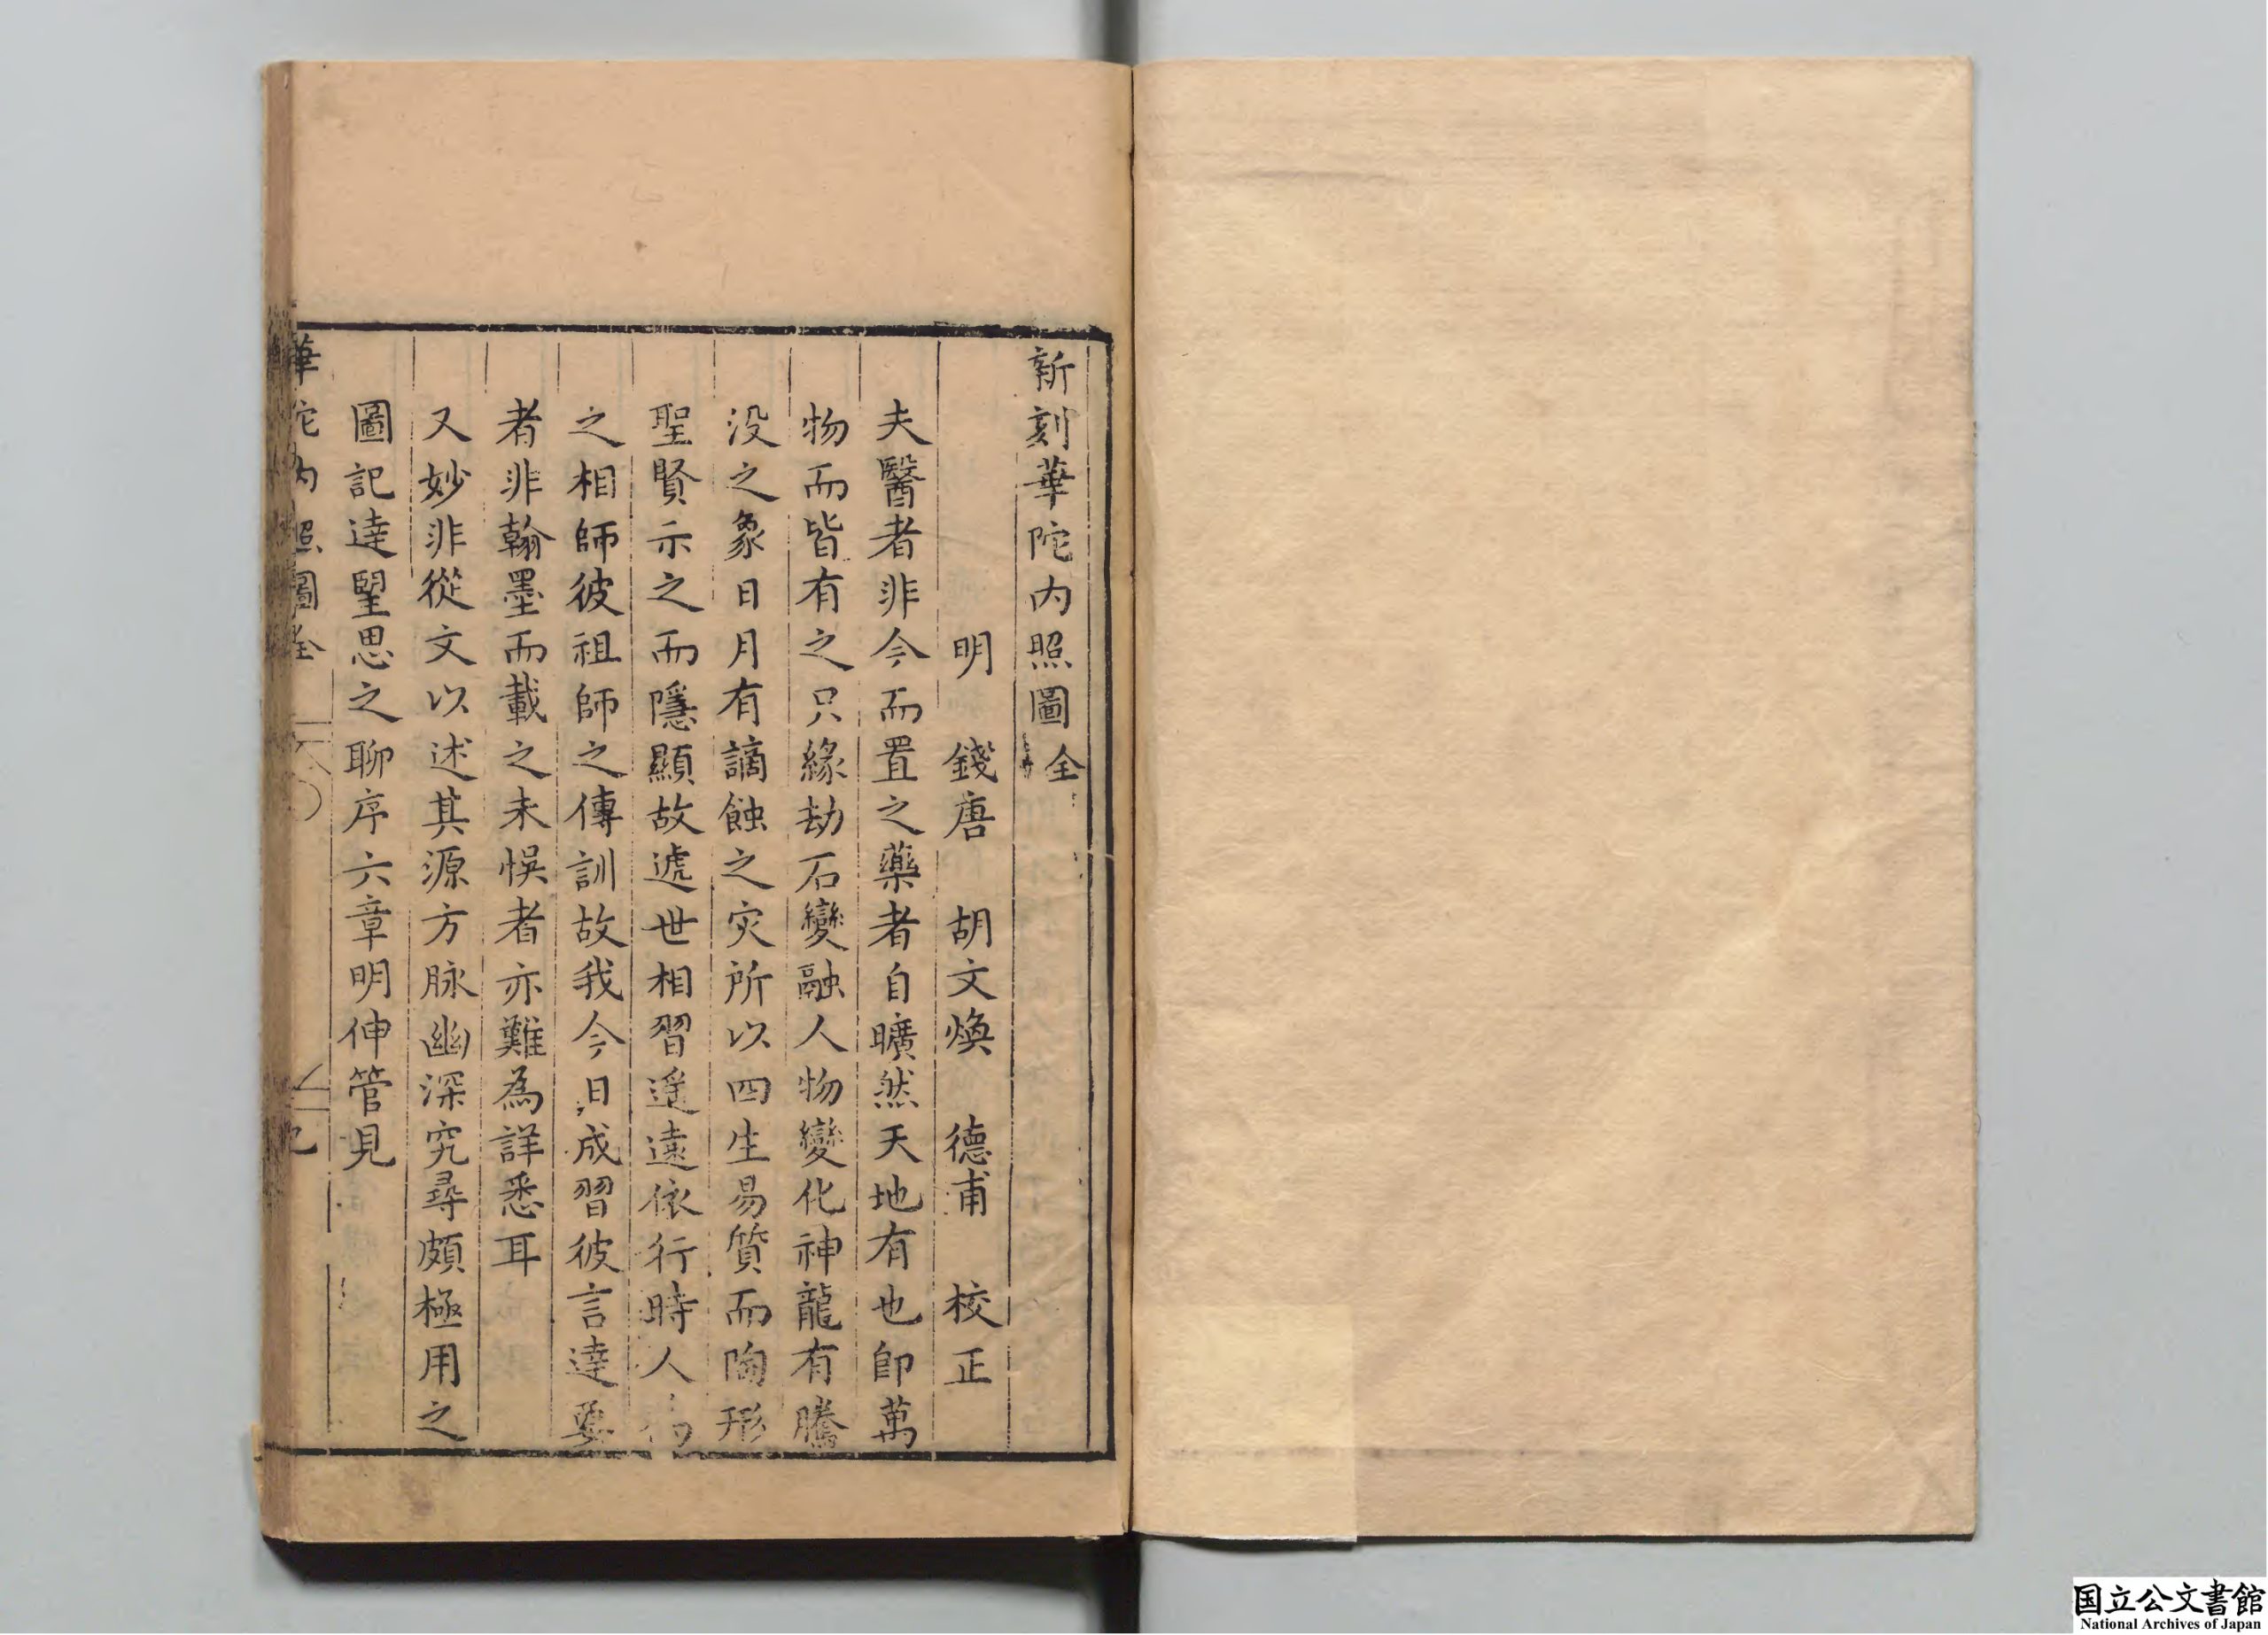 新刻華陀内照圖全
明 錢唐 胡文煥 德甫 校正
夫醫者非今而置之藥者自曠然天地有也即萬
物而皆有之只緣劫石變融人物變化神龍有騰
没之象日月有謫蝕之灾所以四生易質而陶形
聖賢示之而隱顯故遞世相習遥遠依行時人
之相師彼祖師之傳訓故我今日成習彼言達要
者非翰墨而載之未悞者亦難為詳悉耳
又妙非從文以述其源方脉幽深究尋頗極用之
圖記達聖思之聊序六章明伸管見
華佗内照圖全
国立公文書館
National Archives of Japan